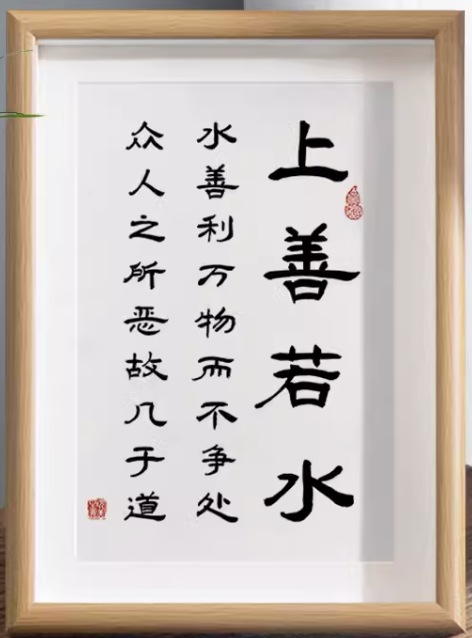 上善若水
水善利万物而不争处
众人之所恶故几于道